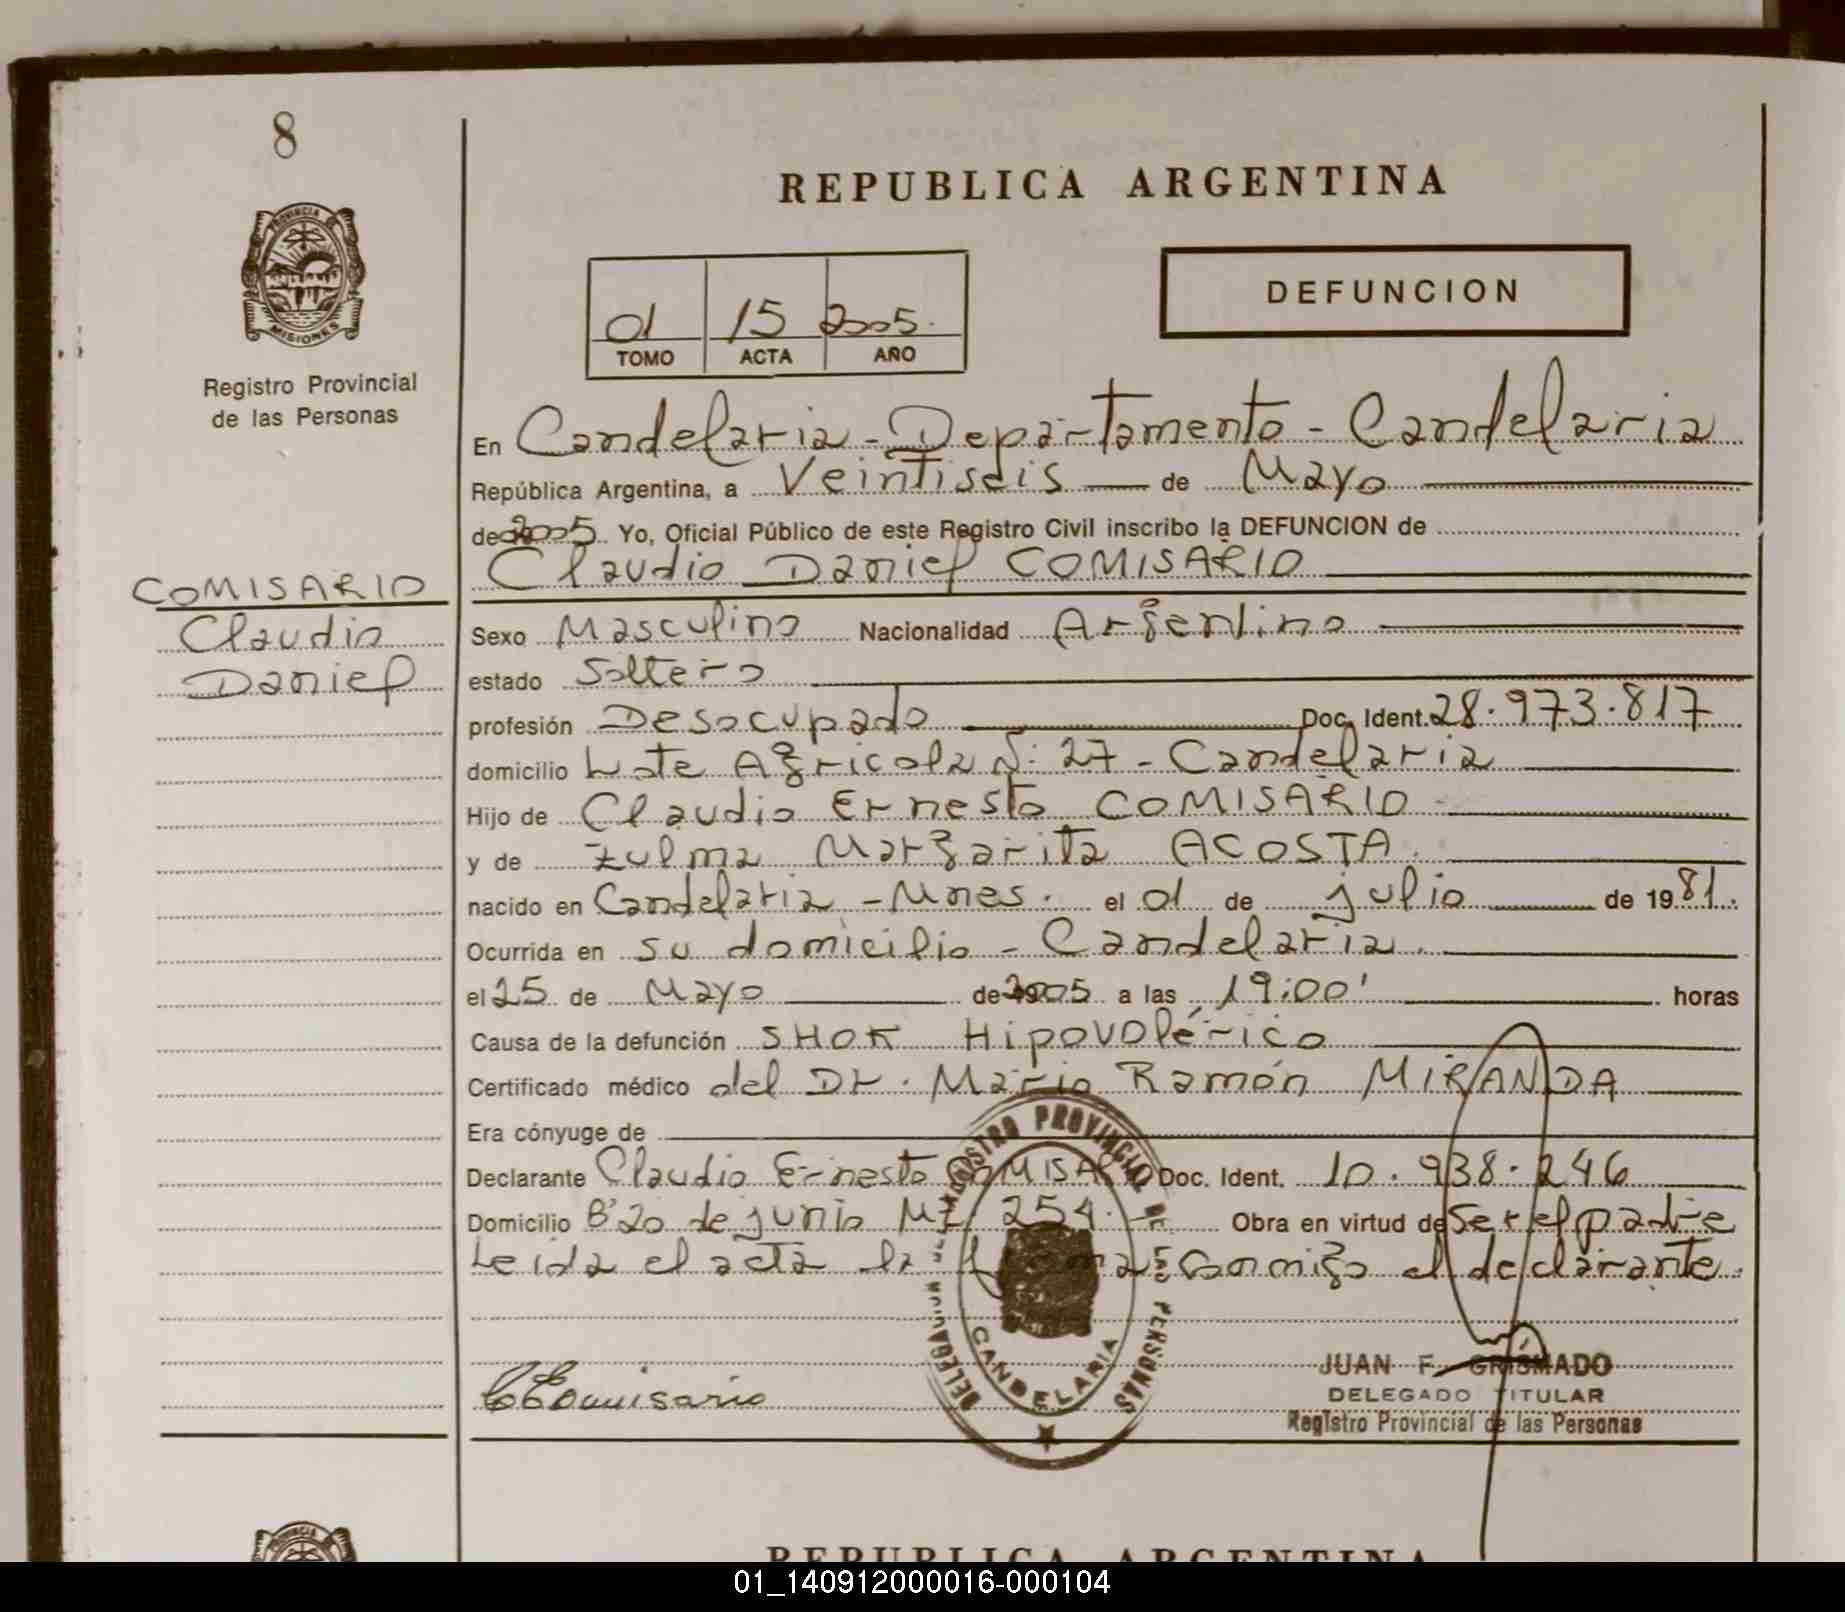 8
PROVINCIA DE
MISIONES
Registro Provincial
de las Personas
COMISARIO
Claudio
Daniel
REPUBLICA ARGENTINA
01 15 2005.
TOMO ACTA AÑO
DEFUNCION
En Candelaria - Departamento - Candelaria
República Argentina, a Veintiseis de Mayo
de 2005 Yo, Oficial Público de este Registro Civil inscribo la DEFUNCION de
Claudio Daniel COMISARIO
Sexo Masculino Nacionalidad Argentino
estado Soltero
profesión Desocupado Doc. Ident. 28.973.817
domicilio Lote Agricola N: 27 - Candelaria
Hijo de Claudio Ernesto COMISARIO
y de Zulma Margarita ACOSTA.
nacido en Candelaria - Mnes. el 01 de julio de 1981.
Ocurrida en su domicilio - Candelaria.
el 25 de Mayo de 2005 a las 19:00' horas
Causa de la defunción SHOK Hipovolérico
Certificado médico del Dr. Mario Ramón MIRANDA
Era cónyuge de
Declarante Claudio Ernesto COMISARIO Doc. Ident. 10.938.246
Domicilio Bº 20 de junio Mz 254. Obra en virtud de ser el padre
Leida el acta la firma conmigo el declarante.
CEComisario
DELEGACION REGISTRO PROVINCIAL DE LAS PERSONAS
CANDELARIA
JUAN F. GRISMADO
DELEGADO TITULAR
Registro Provincial de las Personas
PROVINCIA
REPUBLICA ARGENTINA
01_140912000016-000104